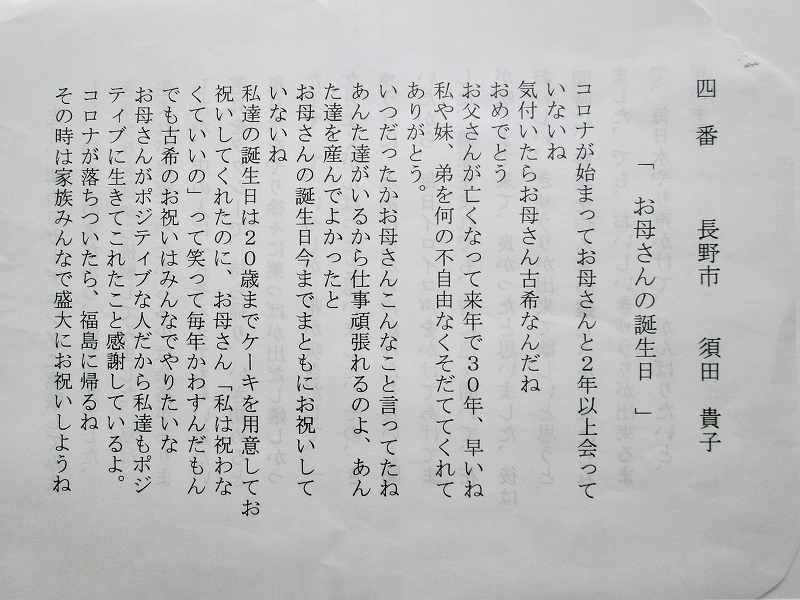 四番　長野市　須田　貴子
「お母さんの誕生日　」
コロナが始まってお母さんと２年以上会って
いないね
気付いたらお母さん古希なんだね
おめでとう
お父さんが亡くなって来年で３０年、早いね
私や妹、弟を何の不自由なくそだててくれて
ありがとう。
いつだったかお母さんこんなこと言ってたね
あんた達がいるから仕事頑張れるのよ、あん
た達を産んでよかったと
お母さんの誕生日今までまともにお祝いして
いないね
私達の誕生日は２０歳までケーキを用意してお
祝いしてくれたのに、お母さん「私は祝わな
くていいの」って笑って毎年かわすんだもん
でも古希のお祝いはみんなでやりたいな
お母さんがポジティブな人だから私達もポジ
ティブに生きてこれたこと感謝しているよ。
コロナが落ちついたら、福島に帰るね
その時は家族みんなで盛大にお祝いしようね